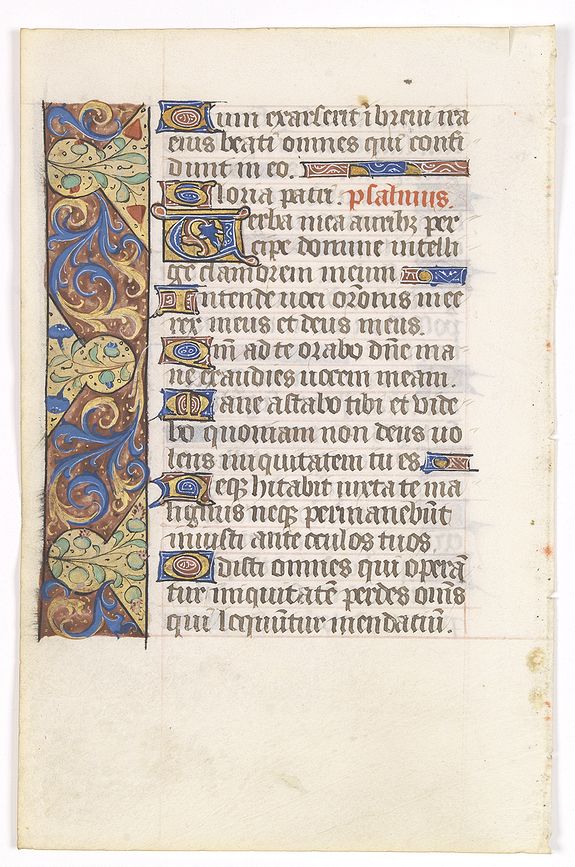 Cum exarserit ī brevi ira
eius beati omnes qui confi
dunt in eo.
Gloria patri. psalmus.
Verba mea auribꝫ per
cipe domine intelli
ge clamorem meum
Intende voci orōīs mee
rex meus et deus meus.
Qm̄ ad te orabo dn̄e ma
ne exaudies vocem meam.
Mane astabo tibi et vide
bo quoniam non deus vo
lens iniquitatem tu es
Neqꝫ hītabit iuxta te ma
lignus neqꝫ permanebūt
iniusti ante oculos tuos
Odisti omnes qui operā
tur iniquitatē perdes om̄s
qui loquūtur mendaciū.